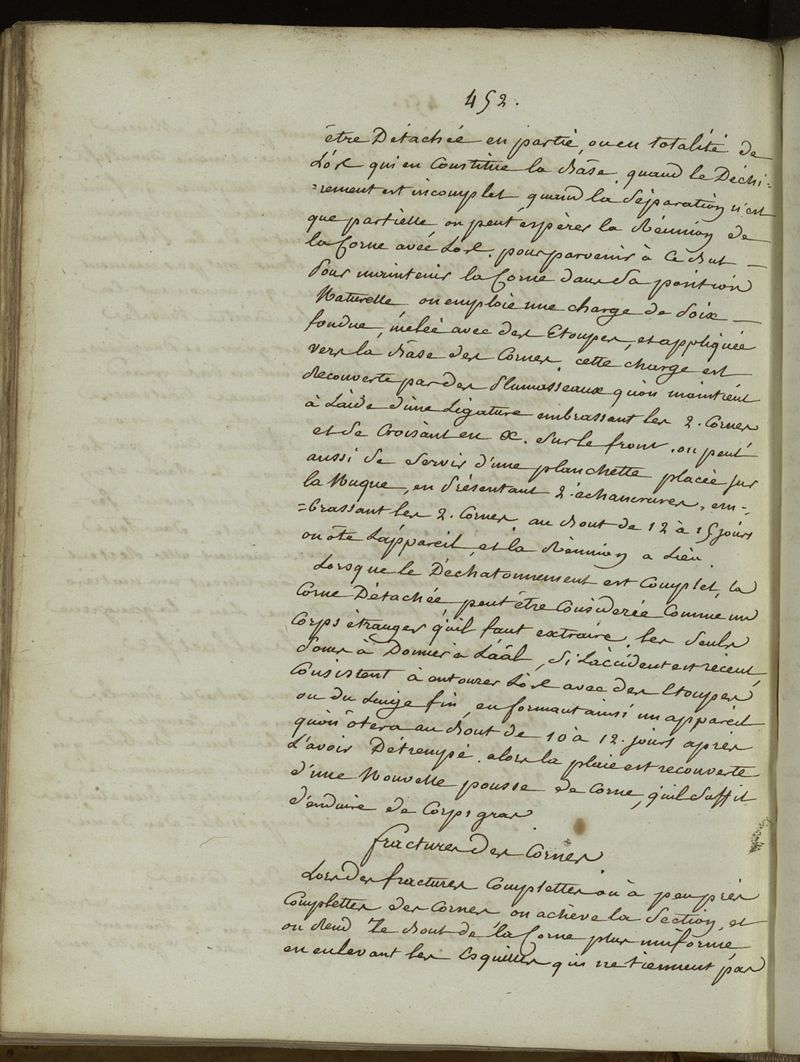 452.
être Détachée en partie, ou en totalité de
L'ôs qui en Constitue la Bâse, quand le Déchi-
=rement est incomplet quand la Séparation n'est
que partielle on peut espèrer la Réunion de
la Corne avec L'ôs. pour parvenir à Ce But
Pour maintenir la Corne dans Sa position
Naturelle on emploie une charge de Poix
fondue, mêlée avec des Etoupes, et appliquée
vers la Bâse des Cornes. cette charge est
Recouverte par des Plumasseaux qu'on maintient
à L'aide d'une Ligature embrassant les 2. Cornes
et Se Croisant en X. Sur le front. on peut
aussi Se Servir d'une planchette placée Sur
la Nuque, en Présentant 2. échancrures, em-
=brassant les 2. Cornes. au Bout de 12 à 15 jours
on ôte L'appareil, et la Réunion a Lieu.
Lorsque le Déchatonnement est Complet, la
Corne Détachée, peut être Considerée Comme un
Corps étranger qu'il faut extraire. les Seuls
Soins à Donner a L'aâl, Si L'accident est récent,
Consistent à entourer L'ôs avec des Etoupes
ou du Linge fin, en formant ainsi un appareil
qu'on ôtera au Bout de 10 à 12. jours après
L'avoir Détrempé. alors la plaie est recouverte
d'une Nouvelle pousse de Corne, qu'il Suffit
d'enduire de Corps gras
fractures des Cornes
Lors des fractures Complettes ou à peu près
Complettes des Cornes on achève la Section, et
on Rend Le Bout de la Corne plus uniforme
en enlevant les Esquilles qui ne tiennent pas